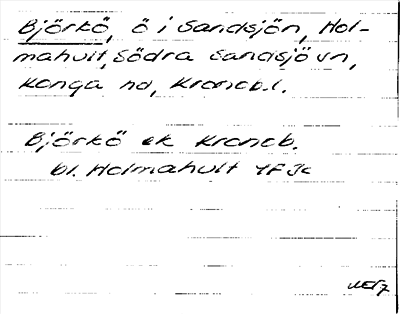 Björkö, ö i Sandsjön, Hol-
mahult, Södra Sandsjö sn,
Konga hd, Kronob.l.
Björkö ek Kronob.
bl. Holmahult 4F Jc